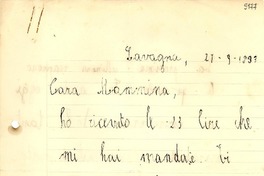 Lavagna, 27-9-1893
Cara Mammina,
ho ricevuto le 23 lire che
mi hai mandate. Vi